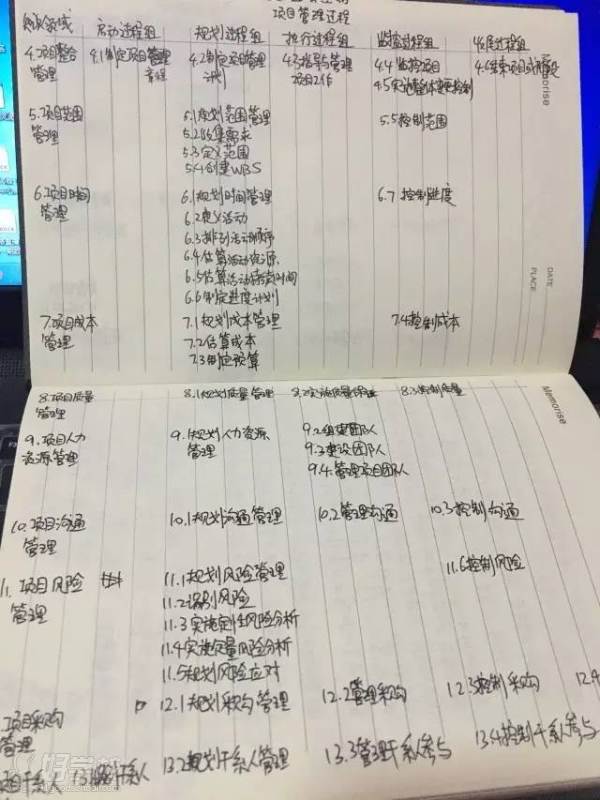 项目管理过程
知识领域 启动过程组 规划过程组 执行过程组 监控过程组 收尾过程组
4.项目整合 4.1制定项目管理 4.2制定项目管理 4.3指导与管理 4.4监控项目 4.6结束项目或阶段
管理 章程 计划 项目工作 4.5实施整体变更控制
5.项目范围 5.1规划范围管理 5.5控制范围
管理 5.2收集需求
5.3定义范围
5.4创建WBS
6.项目时间 6.1规划时间管理 6.7控制进度
管理 6.2定义活动
6.3排列活动顺序
6.4估算活动资源
6.5估算活动持续时间
6.6制定进度计划
7.项目成本 7.1规划成本管理 7.4控制成本
管理 7.2估算成本
7.3制定预算
Memorise
DATE
PLACE
8.项目质量 8.1规划质量管理 8.2实施质量保证 8.3控制质量
管理
9.项目人力 9.1规划人力资源 9.2组建团队
资源管理 管理 9.3建设团队
9.4管理项目团队
10.项目沟通 10.1规划沟通管理 10.2管理沟通 10.3控制沟通
管理
11.项目风险 11.1规划风险管理 11.6控制风险
管理 11.2识别风险
11.3实施定性风险分析
11.4实施定量风险分析
11.5规划风险应对
项目采购 12.1规划采购管理 12.2管理采购 12.3控制采购 12.4
管理
项目干系人 13.1识别干系人 13.2规划干系人管理 13.3管理干系人参与 13.4控制干系人参与
Memorise
好学